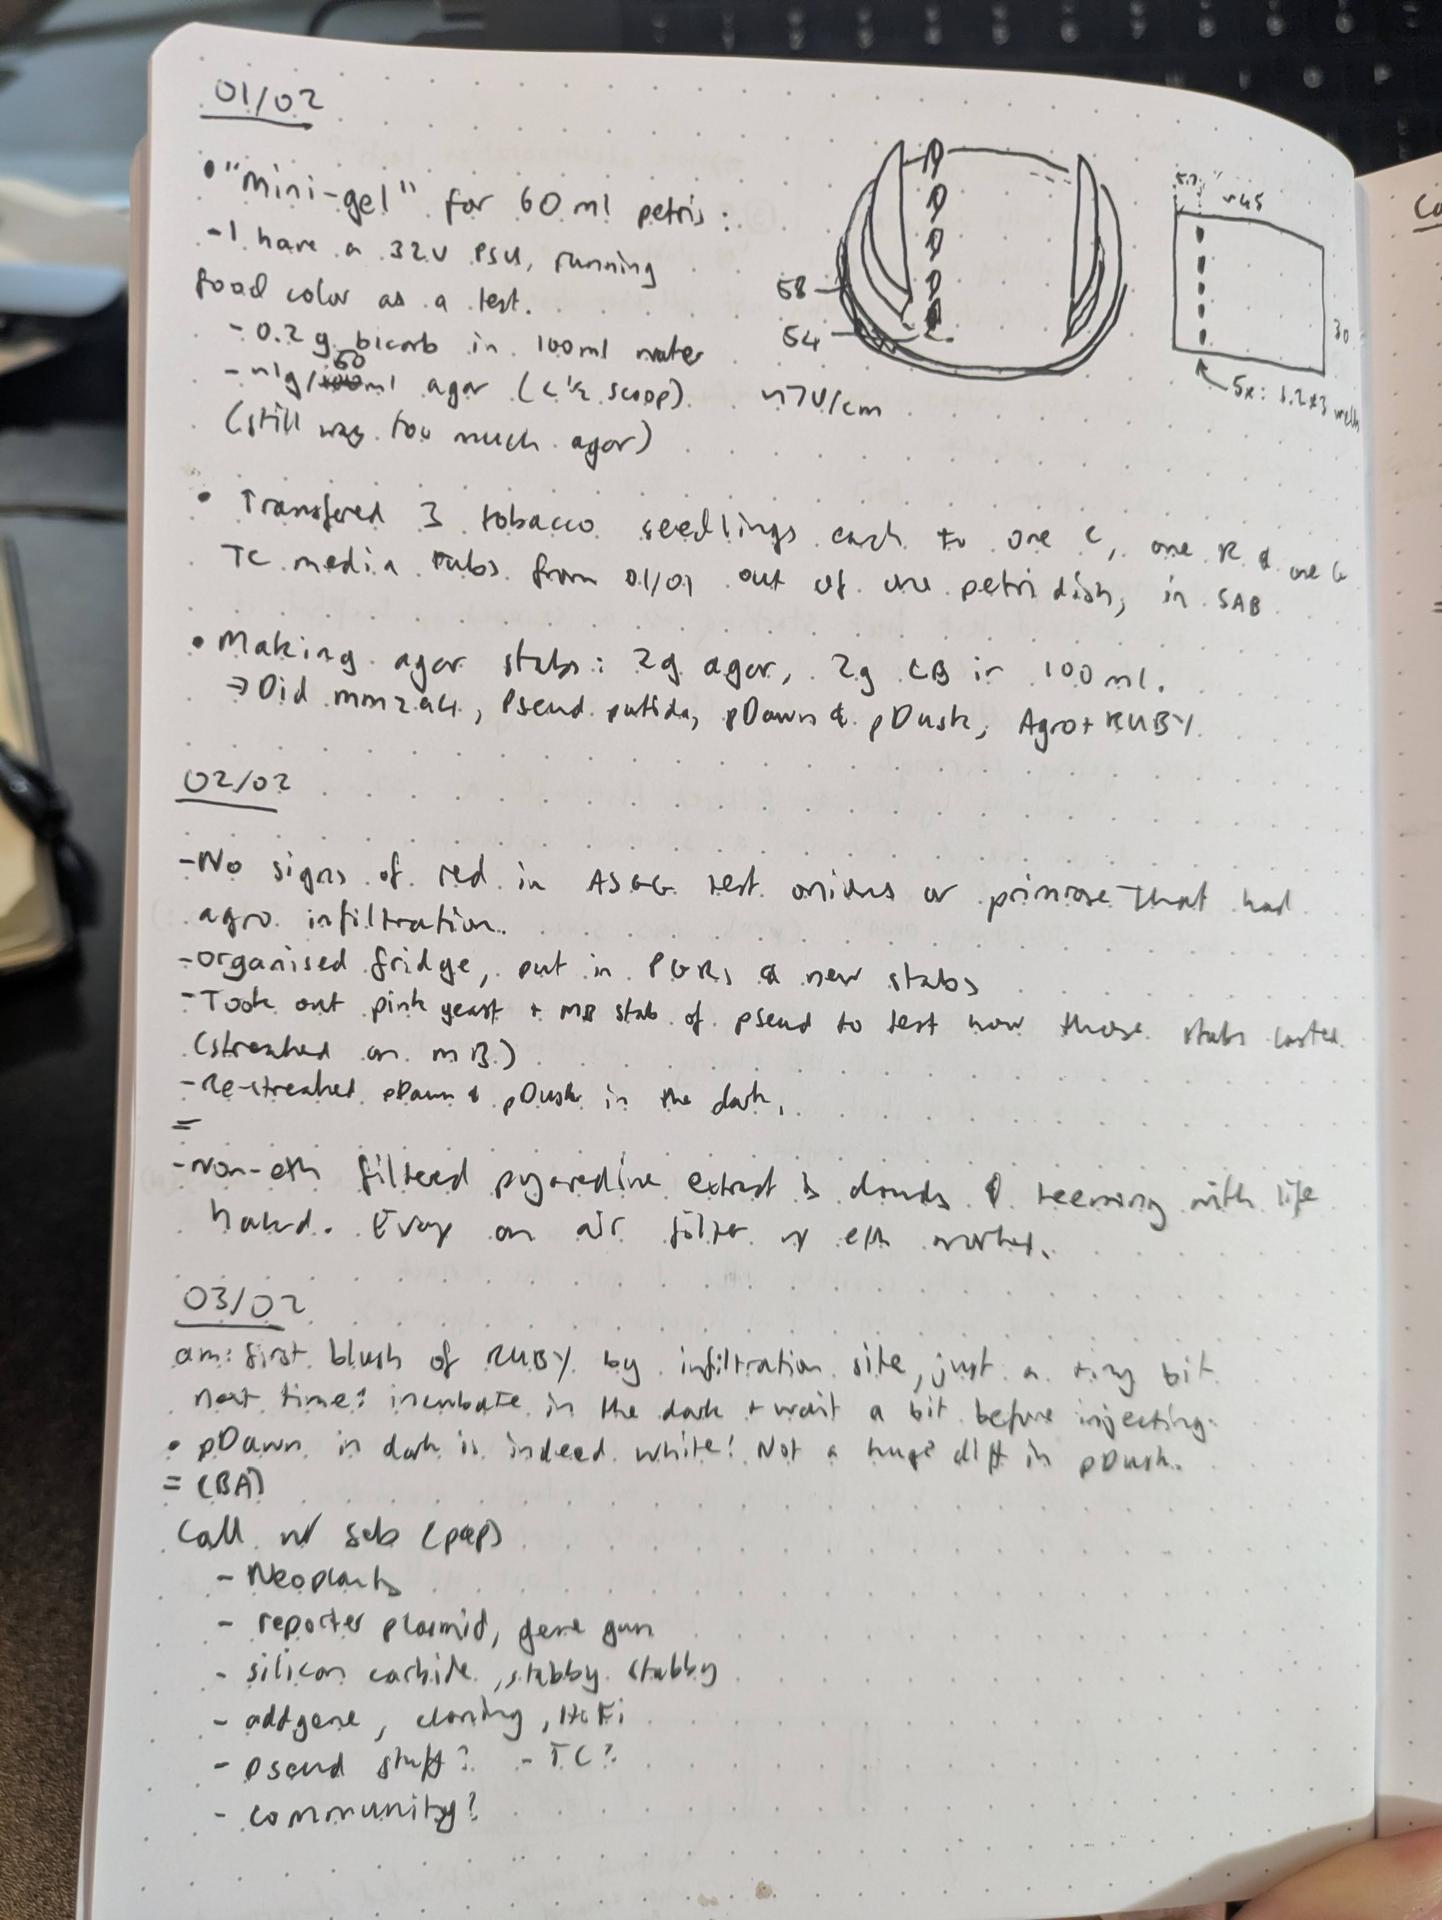 01/02
• "mini-gel" for 60ml petris:
- I have a 32V PSU, running
food color as a test.
- 0.2g bicarb in 100ml water
- ~1g/50ml agar (<½ scoop).
(still way too much agar)
~7V/cm
58
54
~45
30
5x: 1.2x3 wells
• Transfered 3 tobacco seedlings each to one C, one R & one G
TC media tubs from 01/01 out of one petri dish, in SAB
• Making agar stabs: 2g agar, 2g LB in 100ml.
→ Did mm294, Pseud putida, pDawn & pDusk, Agro+RUBY.
02/02
- No signs of red in test onions or primrose that had
agro infiltration.
- organised fridge, put in PGRs & new stabs
- Took out pink yeast + MB stab of pseud to test how those stabs lasted.
(streaked on MB.)
- Re-streaked pDawn & pDusk in the dark.
=
- Non-eth filtered extract is cloudy & teeming with life
Evap on air filter w eth worked.
03/02
am: first blush of RUBY by infiltration site, just a tiny bit
next time: incubate in the dark + wait a bit before injecting.
• pDawn in dark is indeed white! Not a huge diff in pDusk.
= (BA)
Call w/ seb (pep)
- Neoplants
- reporter plasmid, gene gun
- silicon carbide, stabby stabby
- addgene, cloning, HiFi
- pseud stuff? - TC?
- community?
Co